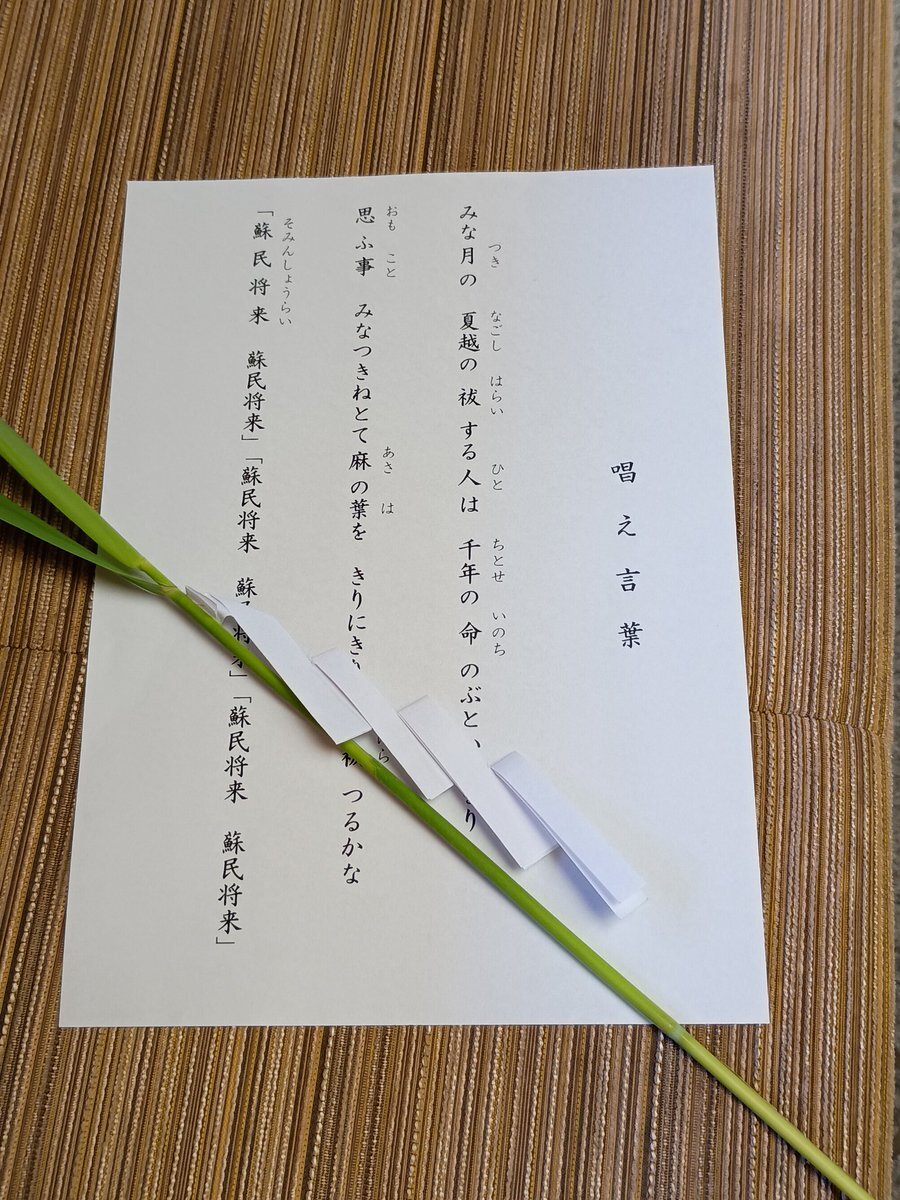 唱え言葉
みな月の 夏越の祓する人は 千年の命のぶと
つき なごし はらい ひと ちとせ いのち
思ふ事 みなつきねとて麻の葉を きりにき つるかな
おも こと あさ は
「蘇民将来 蘇民将来」「蘇民将来 蘇 」「蘇民将来 蘇民将来」
そみんしょうらい